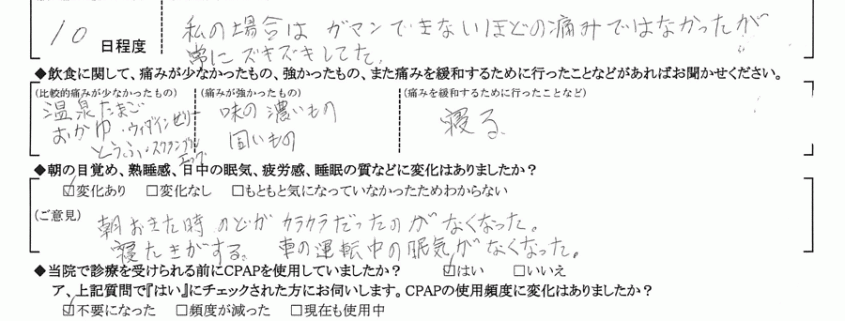 10 日程度
私の場合は ガマンできないほどの痛みではなかったが
常にズキズキしてた。
◆飲食に関して、痛みが少なかったもの、強かったもの、また痛みを緩和するために行ったことなどがあればお聞かせください。
(比較的痛みが少なかったもの) (痛みが強かったもの) (痛みを緩和するために行ったことなど)
温泉たまご
おかゆ・ウィダインゼリー
とうふ・スクランブル
エッグ
味の濃いもの
固いもの
寝る。
◆朝の目覚め、熟睡感、日中の眠気、疲労感、睡眠の質などに変化はありましたか？
☑変化あり □変化なし □もともと気になっていなかったためわからない
(ご意見)
朝おきた時のどがカラカラだったのがなくなった。
寝たきがする。 車の運転中の眠気がなくなった。
◆当院で診療を受けられる前にCPAPを使用していましたか？ ☑はい □いいえ
ア、上記質問で『はい』にチェックされた方にお伺いします。CPAPの使用頻度に変化はありましたか？
☑不要になった □頻度が減った □現在も使用中